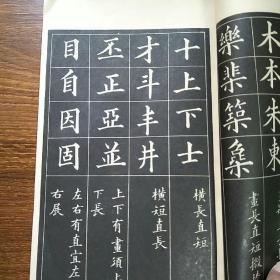 木本朱
樂棐築
畫長直短撇
十上下士
橫長直短
才斗丰井
橫短直長
丕正亞並
上下有畫須上
下長
目自因固
左右有直宜左
右展